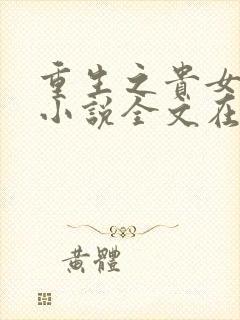 重生之貴女
小說全文在
黃體